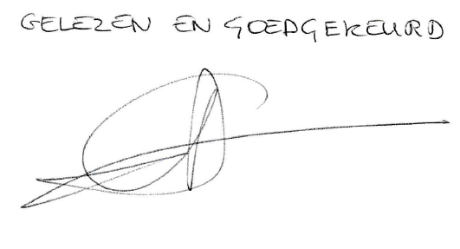 GELEZEN EN GOEDGEKEURD